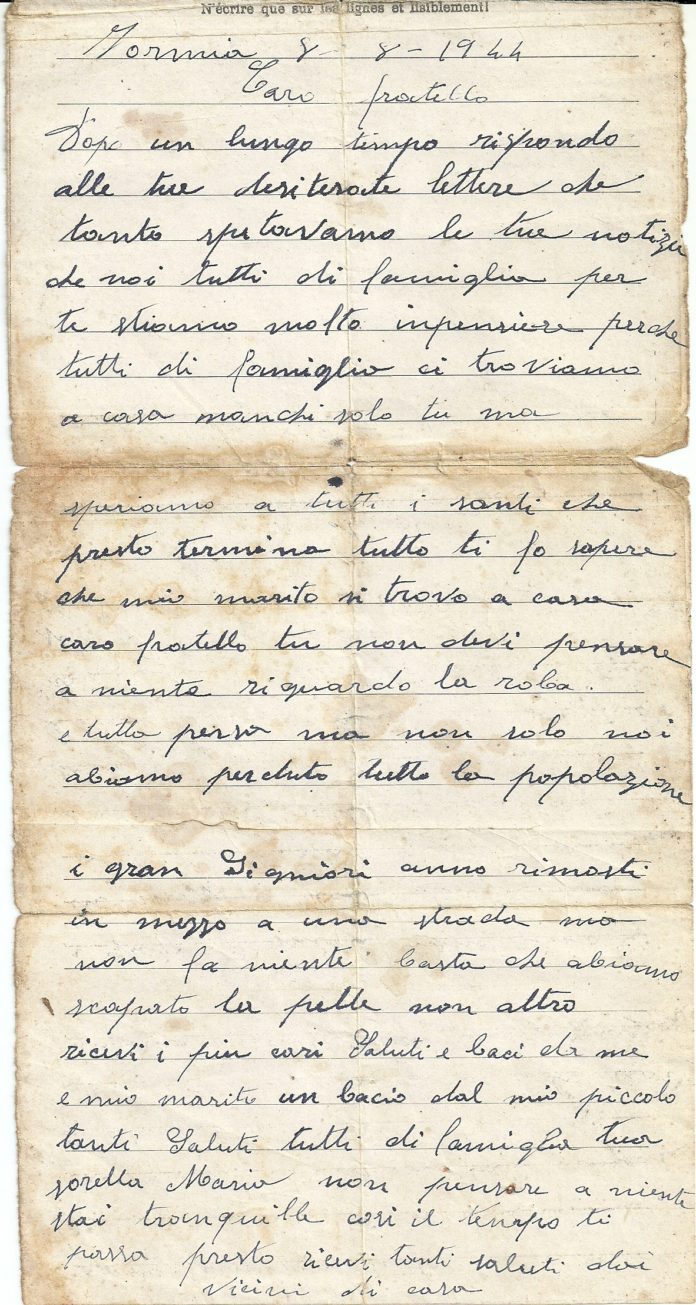 N'écrire que sur les lignes et lisiblement!
8 - 8 - 1944
Caro fratello
Dopo un lungo tempo rispondo
alle tue desiterate lettere che
tanto spetavamo le tue notizie
che noi tutti di famiglia per
te stiamo molto inpensiere perche
tutti di famiglia ci troviamo
a casa manchi solo tu ma
speriamo a tutti i santi che
presto termina tutto ti fo sapere
che mio marito si trovo a casa
caro fratello tu non devi pensare
a niente riguardo la roba.
e tutta persa ma non solo noi
abiamo perduto tutto la popolazione
i gran Signiori anno rimasti
in mezzo a una strada ma
non fa niente basta che abiamo
scapato la pelle non altro
ricevi i piu cari Saluti e baci da me
e mio marito un bacio dal mio piccolo
tanti Saluti tutti di famiglia tua
sorella Maria non pensare a niente
stai tranquille cosi il tempo ti
passa presto ricevi tanti saluti dai
vicini di casa